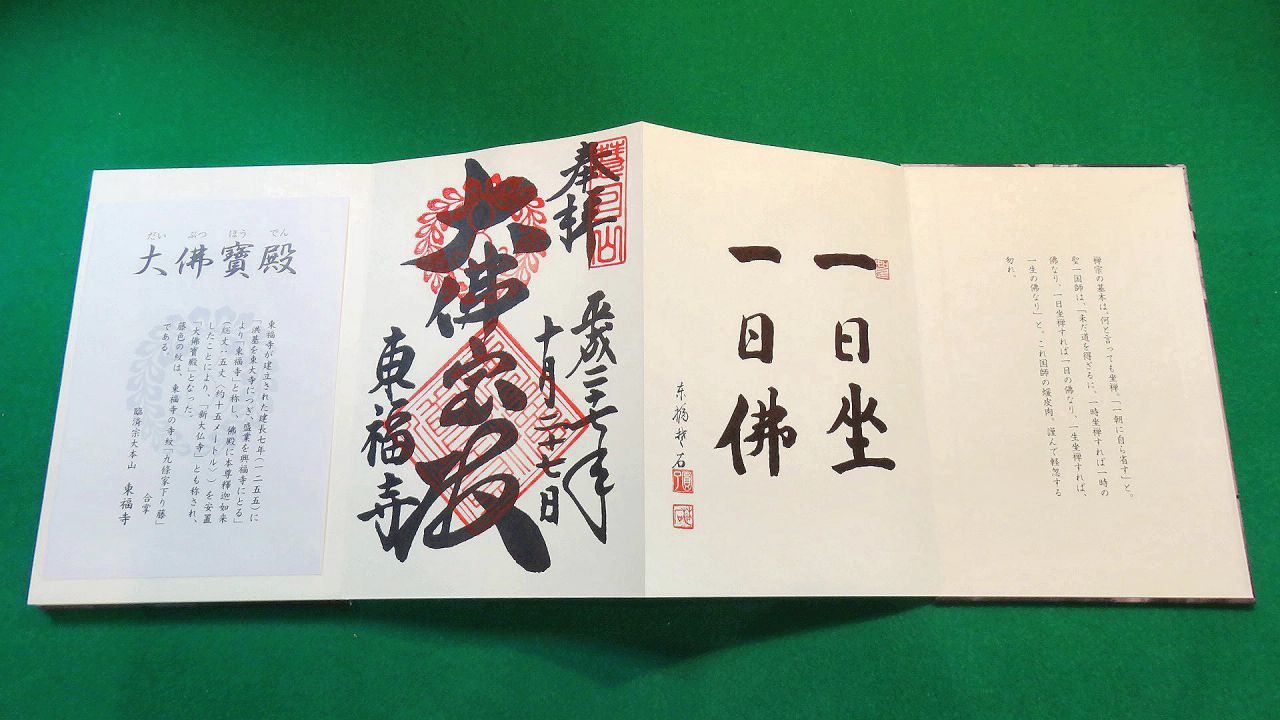 禅宗の基本は、何と言っても坐禅。「一朝に自ら省す」と。
聖一国師は、「未だ道を得ざるに、一時坐禅すれば一時の
佛なり、一日坐禅すれば一日の佛なり、一生坐禅すれば、
一生の佛なり」と。これ国師の煖皮肉、謹んで軽忽する
勿れ。
一日坐
一日佛
奉拝
慧日山
平成二十七年
十月二十七日
大佛宝殿
東福寺
だい ぶつ ほう でん
大佛寶殿
東福寺が建立された建長七年(一二五五)に
「洪基を東大寺につぎ、盛業を興福寺にとる」
より「東福寺」と称し、佛殿に本尊釋迦如来
(総丈・五丈〈約十五メートル〉)を安置
したことにより、「新大仏寺」とも称され、
「大佛寶殿」となった。
藤色の紋は、東福寺の寺紋「九條家下り藤」
である。
合掌
臨済宗大本山 東福寺